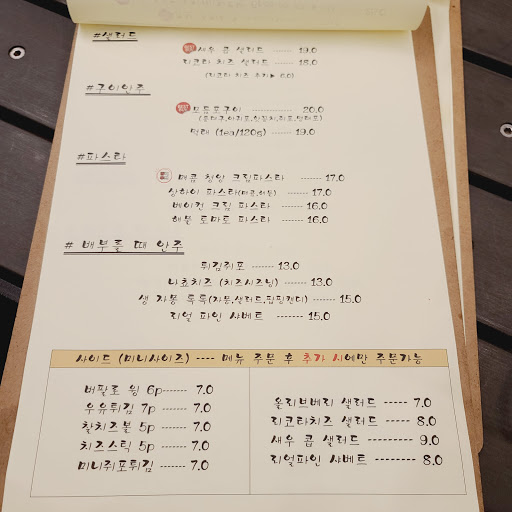 #샐러드
새우 콥 샐러드 ------ 19.0
리코타 치즈 샐러드 ------ 18.0
(리코타 치즈 추가▶ 6.0)
#구이안주
모듬포구이 ---------- 20.0
먹태 (1ea/120g) ------- 19.0
#파스타
매콤 청양 크림파스타 ------ 17.0
상하이 파스타(매콤,해물) ------- 17.0
베이컨 크림 파스타 ------- 16.0
해물 토마토 파스타 ------- 16.0
# 배부를 때 안주
튀김쥐포 ------- 13.0
나쵸치즈 (치즈시즈닝) ------- 13.0
생 자몽 톡톡(자몽,샐러드,팝핑캔디) ------- 15.0
리얼 파인 샤베트 ------- 15.0
사이드 (미니사이즈) ---- 메뉴 주문 후 추가 시에만 주문가능
버팔로 윙 6p------- 7.0
우유튀김 7p ------- 7.0
찰치즈볼 5p ------- 7.0
치즈스틱 5p ------- 7.0
미니쥐포튀김 ------- 7.0
올리브베리 샐러드 ------- 7.0
리코타치즈 샐러드 ------- 8.0
새우 콥 샐러드 --------- 9.0
리얼파인 샤베트 --------- 8.0